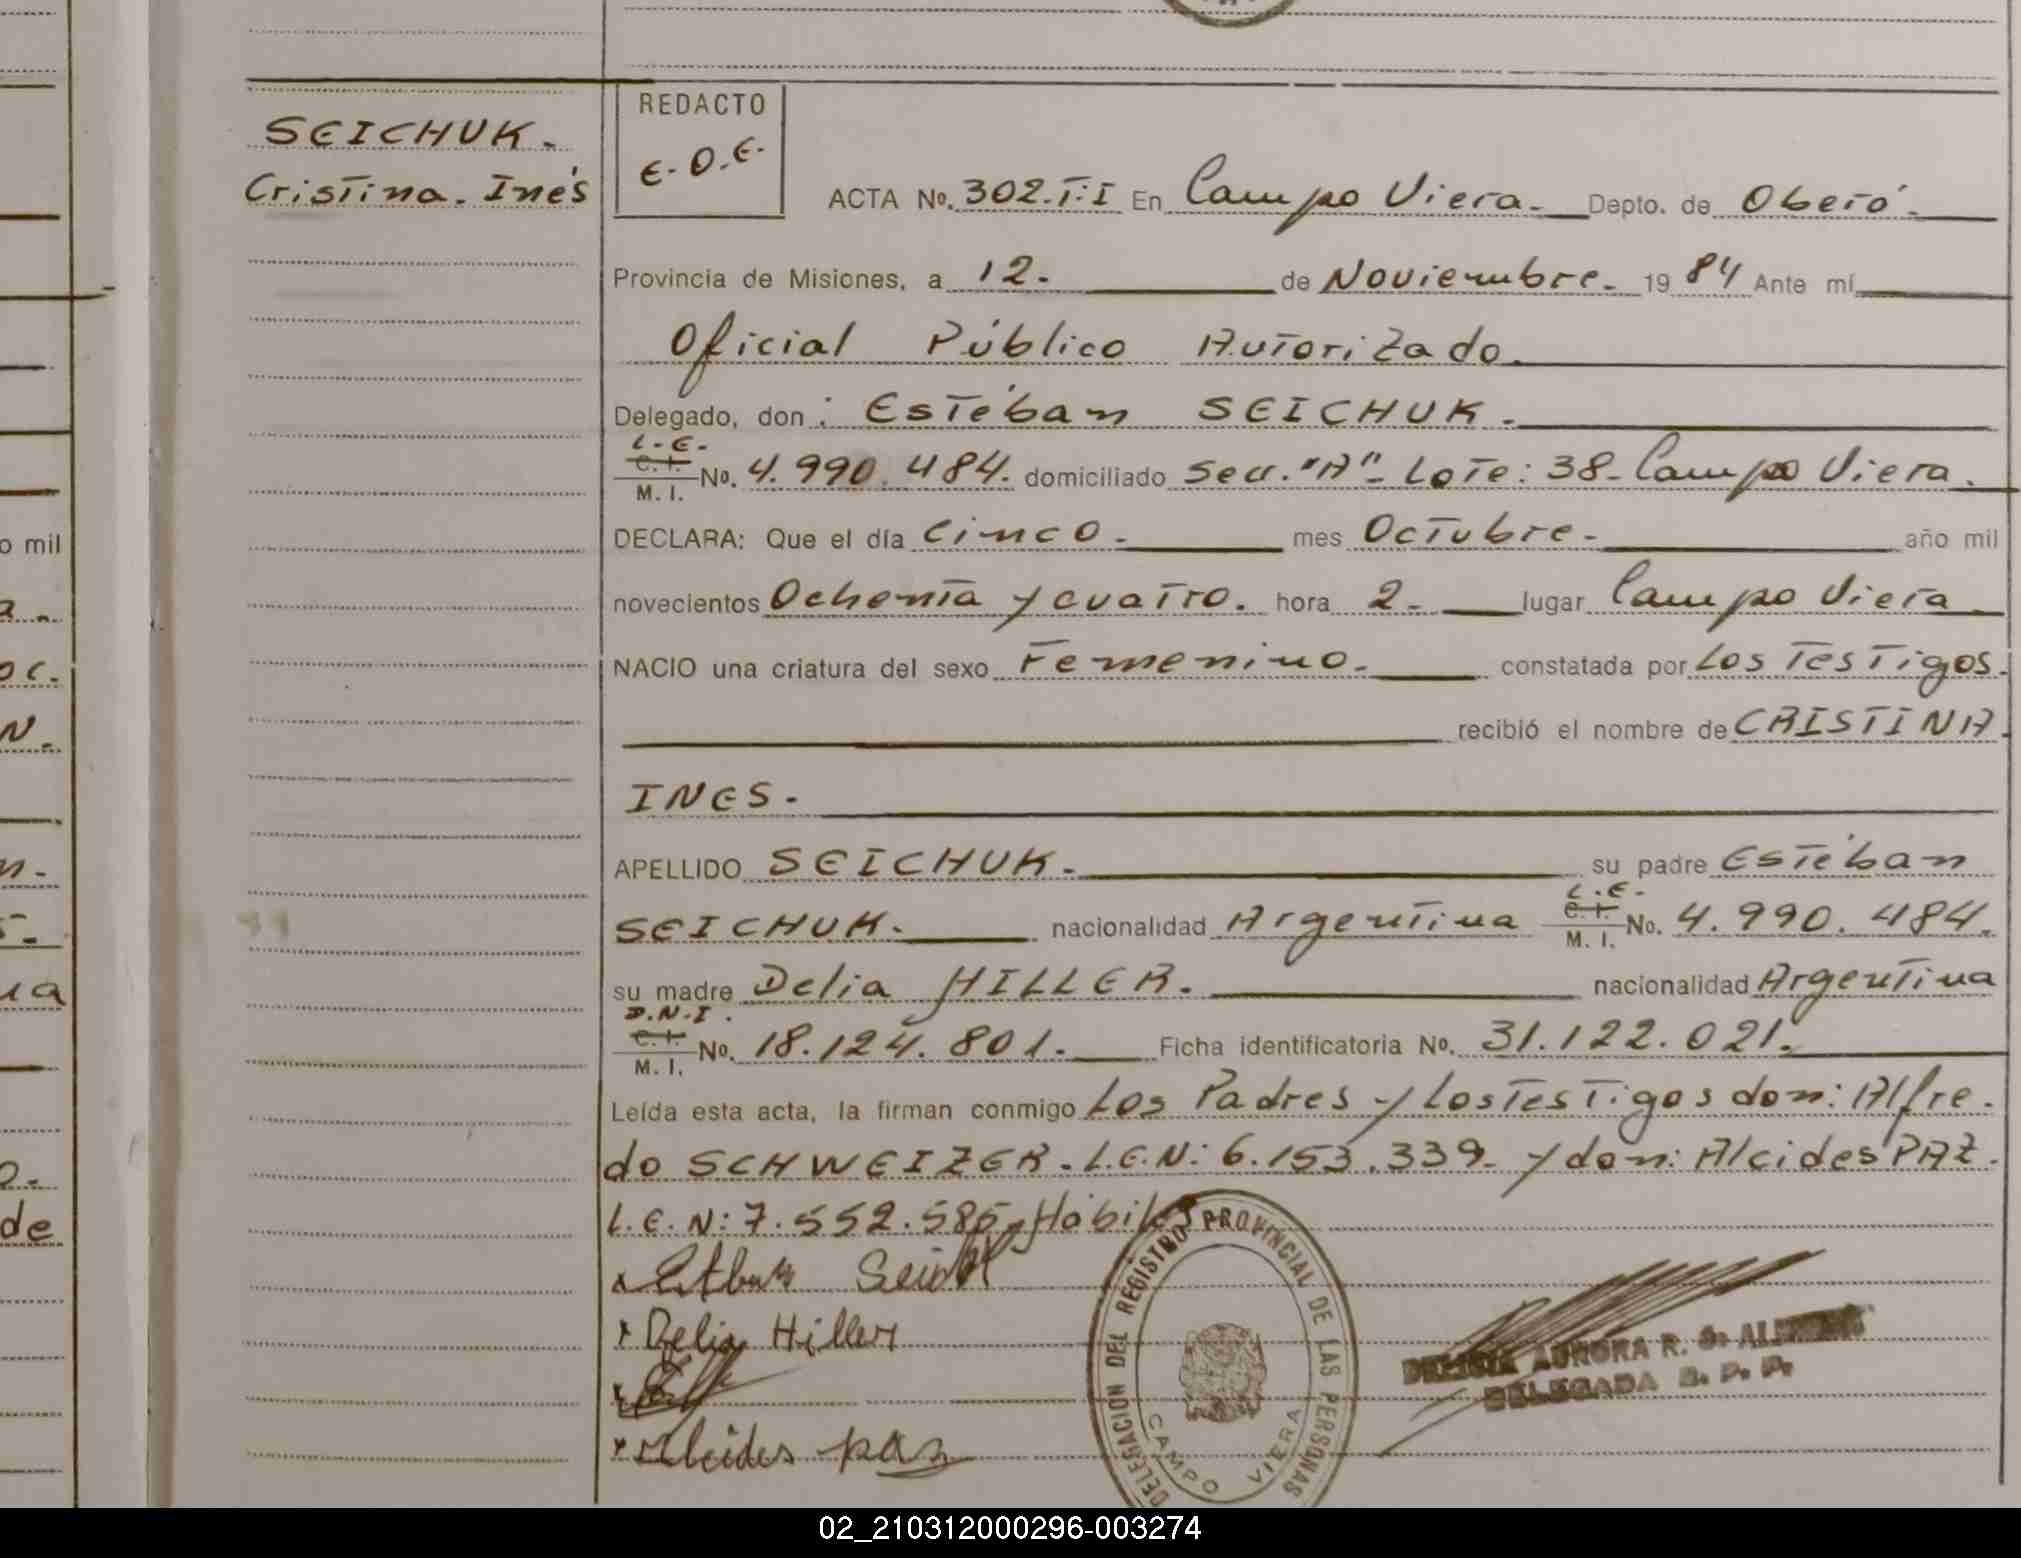 SEICHUK.
Cristina. Inés
REDACTO
E.O.E.
ACTA No. 302.T:I En Campo Viera. Depto. de Oberá.
Provincia de Misiones, a 12. de Noviembre. 1984 Ante mí
Oficial Público Autorizado.
Delegado, don: Estéban SEICHUK.
L.E.
C.I. No. 4.990.484. domiciliado Secc. "A" Lote: 38- Campo Viera.
M. I.
DECLARA: Que el día Cinco. mes Octubre. año mil
novecientos Ochenta y cuatro. hora 2. lugar Campo Viera
NACIO una criatura del sexo Femenino. constatada por Los Testigos.
recibió el nombre de CRISTINA
INES.
APELLIDO SEICHUK. su padre Estéban
L.E.
SEICHUK. nacionalidad Argentina C.I. No. 4.990.484.
M. I.
su madre Delia HILLER. nacionalidad Argentina
D.N.I.
C.I. No. 18.124.801. Ficha identificatoria No. 31.122.021.
M. I.
Leída esta acta, la firman conmigo Los Padres y Los Testigos don: Alfre.
do SCHWEIZER. L.E.N: 6.153.339. y don: Alcides PAZ.
L.E.N: 7.552.585. Hábiles
Delia Hiller
Alcides paz
DELEGACION DEL REGISTRO PROVINCIAL DE LAS PERSONAS
CAMPO VIERA
AURORA R.
DELEGADA
o mil
de
02_210312000296-003274